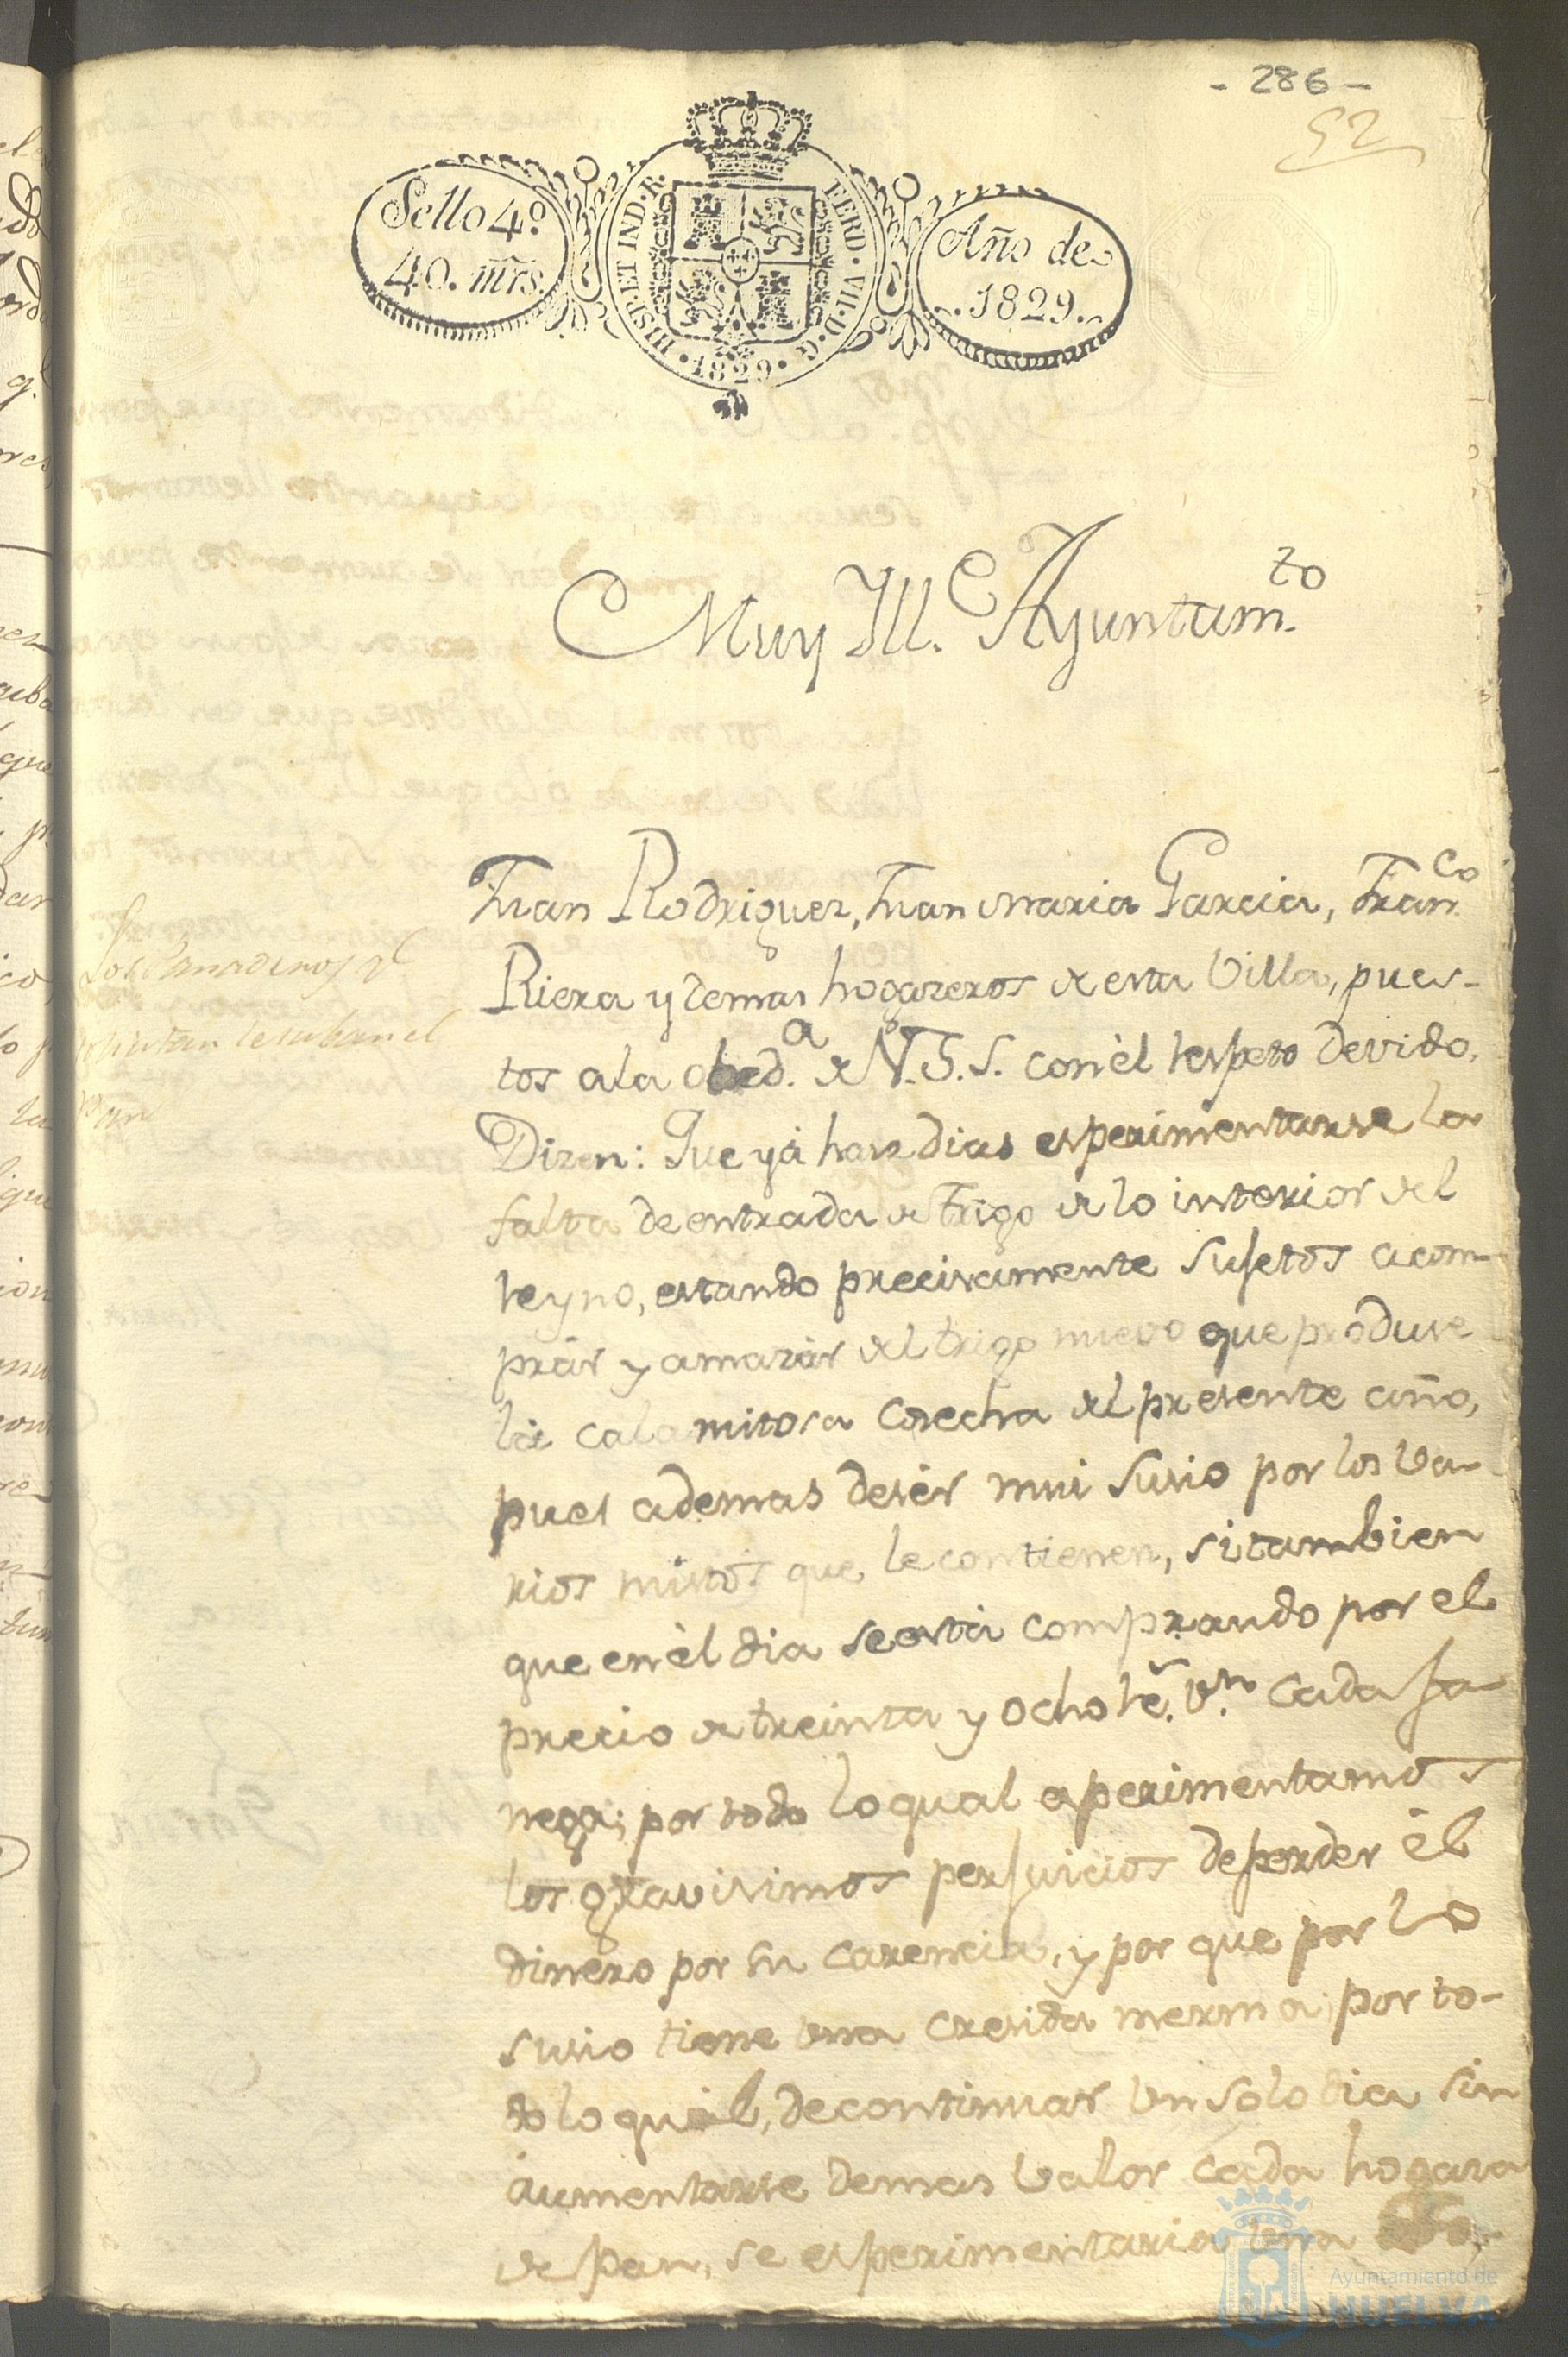 - 286 -
52
Sello 4º
40. mrs.
HISP. ET IND. R.
FERD. VII. D. G.
1829
Año de
1829.
Muy Ill.e Ayuntam.to
Juan Rodriguez, Juan Maria Garcia, Fran.co
Riera y demas hogazeros de esta Villa, pues-
tos a la obed.a de V. S. S. con èl respeto devido,
Dizen: Que yá haze dias esperimentarse la
falta de entrada de Trigo de lo interior del
reyno, estando precisamente sujetos a com-
prár y amazár del trigo nuevo que produse
la calamitosa cosecha del presente año,
pues ademas de sér mui susio por los va-
rios mistos que le contienen, si tambien
que en èl dia se está comprando por el
precio de treinta y ocho r.s v.n cada fa-
nega; por todo lo qual esperimentamos
los gravisimos perjuicios de perder èl
dinero por su carencia, y por que por lo
susio tiene una cresida merma; por to-
do lo quál, de continuar un solo dia sin
aumentarse de mas valor cada hogasa
de pan, se esperimentaria una
Los Panaderos
solicitan se suban el
Pan
Ayuntamiento de
HUELVA